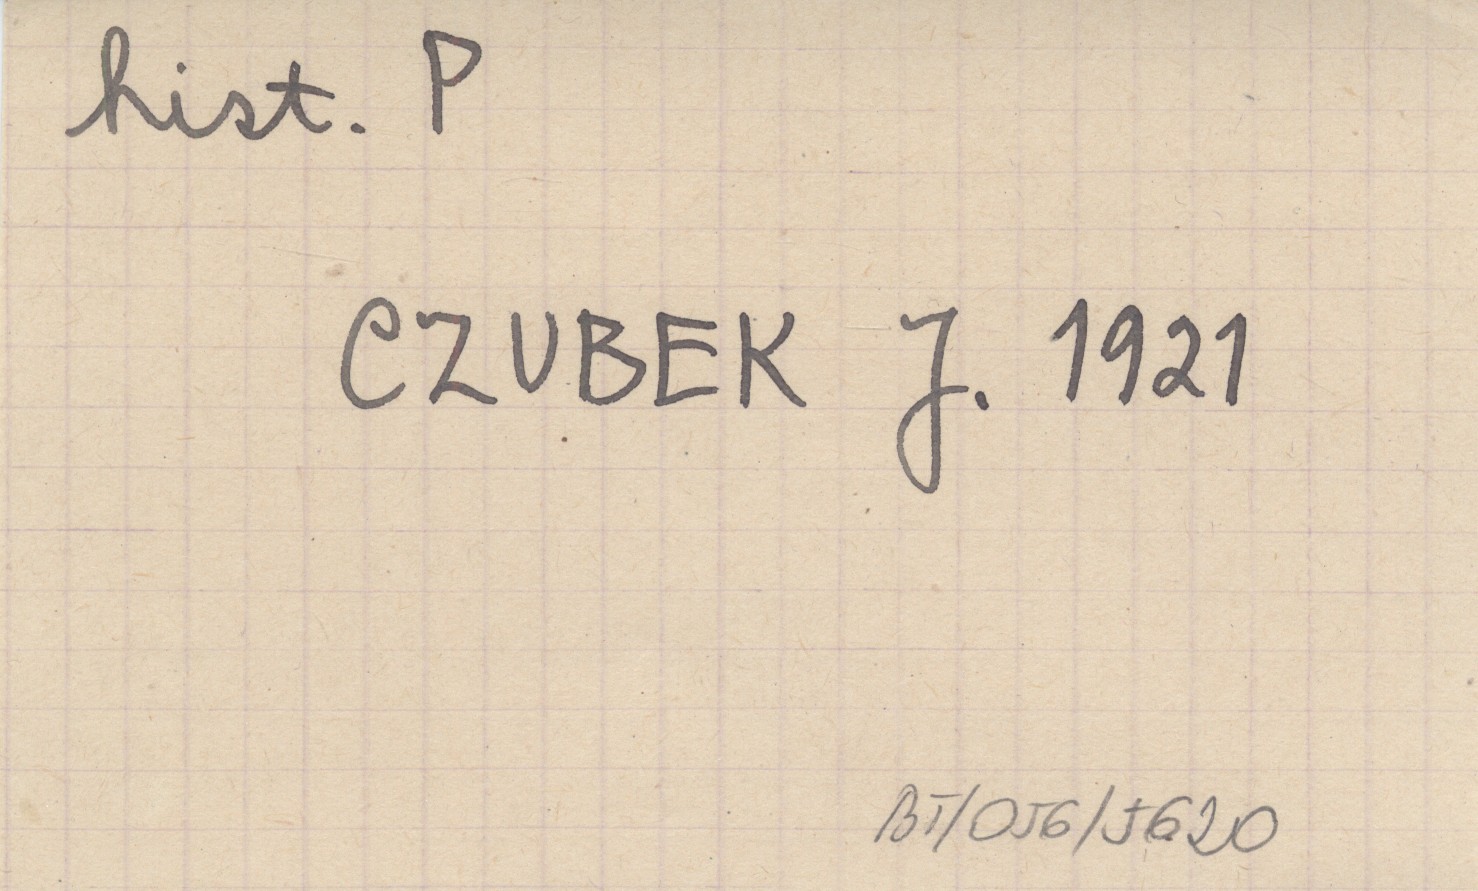 hist. P
CZUBEK J. 1921
BI/OJG/5620